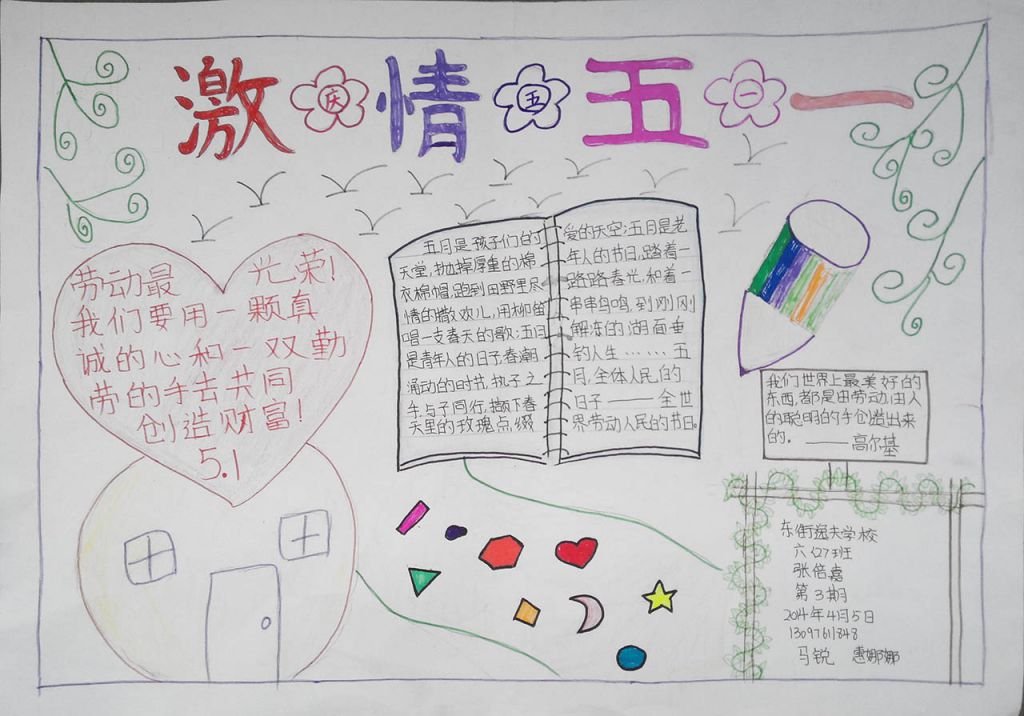 激 庆 情 五 五 一 一
劳动最 光荣!
我们要用一颗真
诚的心和一双勤
劳的手去共同
创造财富!
5.1
五月是孩子们的
天堂,抛掉厚重的棉
衣棉帽,跑到田野里尽
情的撒欢儿,用柳笛
唱一支春天的歌;五月
是青年人的日子,春潮
涌动的时节,执子之
手,与子同行,撷下春
天里的玫瑰点缀
爱的天空;五月是老
年人的节日,踏着一
路路春光,和着一
串串鸟鸣,到刚刚
解冻的湖面垂
钓人生……五
月,全体人民的
日子——全世
界劳动人民的节日。
我们世界上最美好的
东西,都是由劳动、由人
的聪明的手创造出来
的。 ——高尔基
东街逸夫学校
六(2)班
张倍嘉
第3期
2014年4月5日
13097611848
马锐 惠娜娜